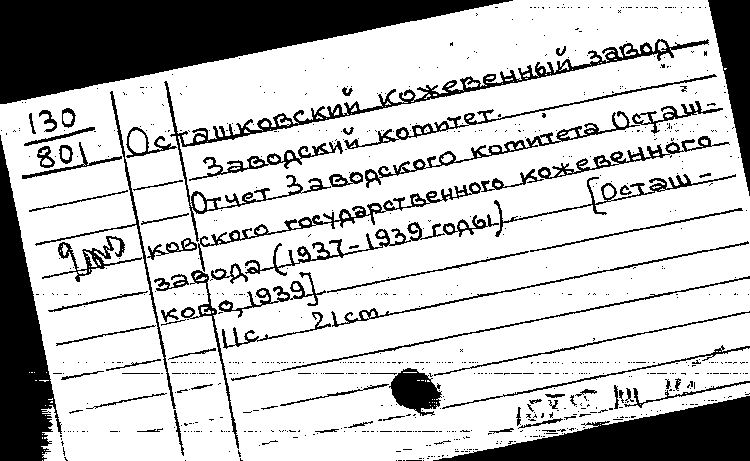 130
801
Осташковский кожевенный завод
Заводский комитет.
Отчет Заводского комитета Осташ-
ковского государственного кожевенного
завода (1937-1939 годы). [Осташ-
ково, 1939]
11с. 21см.